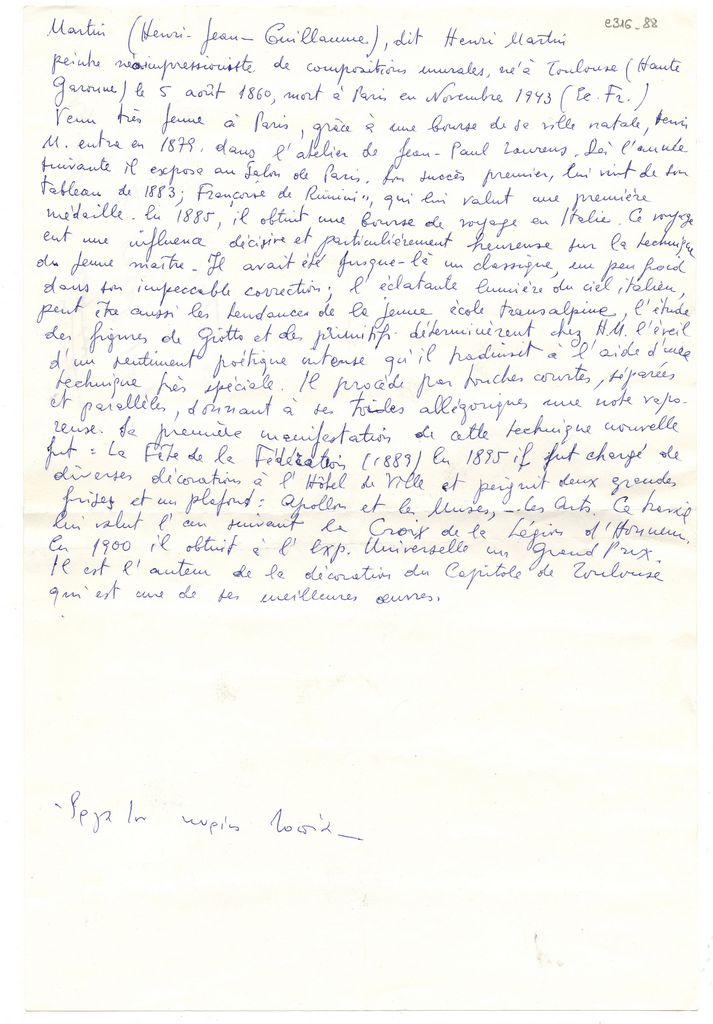 e316_88
Martin (Henri-Jean-Guillaume), dit Henri Martin
peintre néoimpressioniste de compositions murales, né à Toulouse (Haute
Garonne) le 5 août 1860, mort à Paris en Novembre 1943 (Ec. Fr.)
Venu très jeune à Paris, grâce à une bourse de sa ville natale, Henri
M. entra en 1879. dans l'atelier de Jean-Paul Laurens. Dès l'année
suivante il exposa au Salon de Paris. Son succès premier, lui vint de son
tableau de 1883; Françoise de Rimini", qui lui valut une première
médaille. En 1885, il obtint une bourse de voyage en Italie. Ce voyage
eut une influence décisive et particulièrement heureuse sur la technique
du jeune maître. Il avait été jusque-là un classique, un peu froid
dans son impeccable correction; l'éclatante lumière du ciel italien,
peut être aussi les tendances de la jeune école transalpine, l'étude
des figures de Giotto et des primitifs déterminèrent chez H.M. l'éveil
d'un sentiment poétique intense qu'il traduisit à l'aide d'une
technique très spéciale. Il procède par touches courtes, séparées
et parallèles, donnant à ses toiles allégoriques une note vapo-
reuse. Sa première manifestation de cette technique nouvelle
fut : La Fête de la Fédération (1889) En 1895 il fut chargé de
diverses décorations à l'Hôtel de Ville et peignit deux grandes
frises et un plafond: Apollon et les Muses, - Les Arts. Ce travail
lui valut l'an suivant la Croix de la Légion d'Honneur.
En 1900 il obtint à l'Exp. Universelle un Grand Prix.
Il est l'auteur de la décoration du Capitole de Toulouse
qui est une de ses meilleures œuvres.